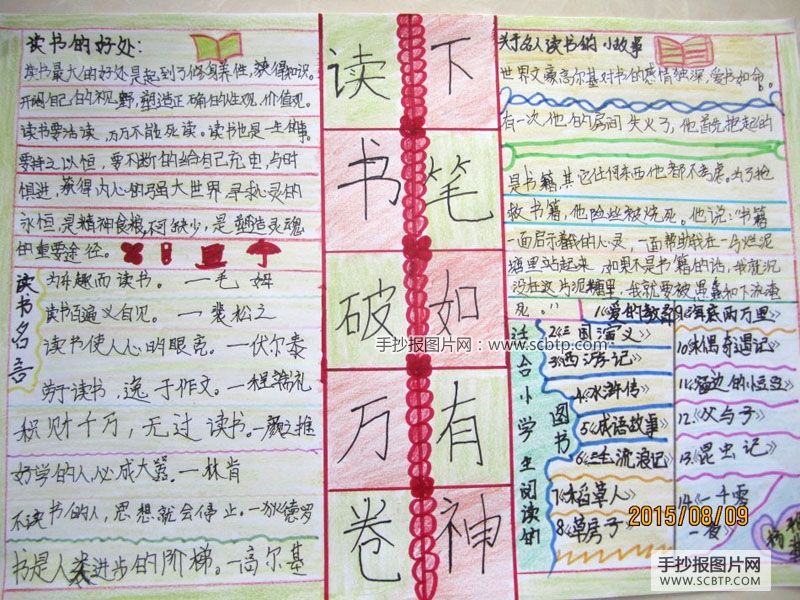 读书的好处:
读书最大的好处是起到了修身养性,获得知识。
开阔自己的视野,塑造正确的人生观,价值观。
读书要活读,万万不能死读。读书也是一生的事。
要持之以恒,要不断的给自己充电,与时
俱进,获得内心的强大世界,寻求心灵的
永恒,是精神食粮,不可缺少,是塑造灵魂
的重要途径。
读书名言
为乐趣而读书。一毛姆
读书百遍义自见。一裴松之
读书使人心的眼亮。一伏尔泰
劳于读书,逸于作文。一程端礼
积财千万,无过读书。一颜之推
好学的人必成大器。一林肯
不读书的人,思想就会停止。一狄德罗
书是人类进步的阶梯。一高尔基
读书破万卷
下笔如有神
关于名人读书的小故事
世界文豪高尔基对书的感情独深,爱书如命。
有一次,他的房间失火了,他首先抱起的
是书籍,其它任何东西他都不考虑。为了抢
救书籍,他险些被烧死。他说:"书籍
一面启示着我的心灵,一面帮助我在一片烂泥
塘里站起来,如果不是书籍的话,我就沉
没在这片泥塘里,我就要被愚蠢和下流淹
死。"
适合小学生阅读的
图书
1.《爱的教育》
2.《三国演义》
3.《西游记》
4.《水浒传》
5.《成语故事》
6.《三毛流浪记》
7.《稻草人》
8.《草房子》
《海底两万里》
10.《木偶奇遇记》
11.《窗边的小豆豆》
12.《父与子》
13.《昆虫记》
14.一千零
一夜
手抄报图片网:www.scbtp.com
2015/08/09
手抄报图片网
WWW.SCBTP.COM